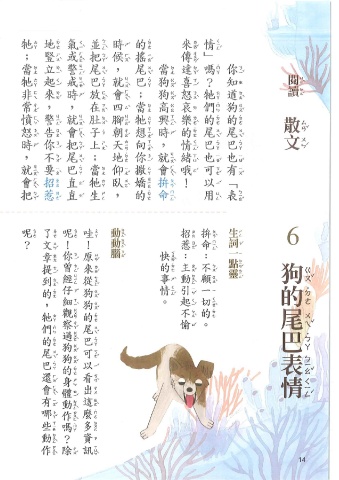 閱讀 散文
6
狗的尾巴表情
你知道狗的尾巴也有「表
情」嗎?牠們的尾巴也可以用
來傳達喜怒哀樂的情緒哦!
當狗狗高興時,就會拚命
的搖尾巴;當牠想向你撒嬌的
時候,就會四腳朝天地仰臥,
並把尾巴放在肚子上;當牠生
氣或警戒時,就會把尾巴直直
地豎立起來,警告你不要招惹
牠;當牠非常憤怒時,就會把
生詞一點靈
拚命:不顧一切的。
招惹:主動引起不愉
快的事情。
動動腦
哇!原來從狗狗的尾巴可以看出這麼多資訊
呢!你曾經仔細觀察過狗狗的身體動作嗎?除
了文章提到的,牠們的尾巴還會有哪些動作
呢?
14